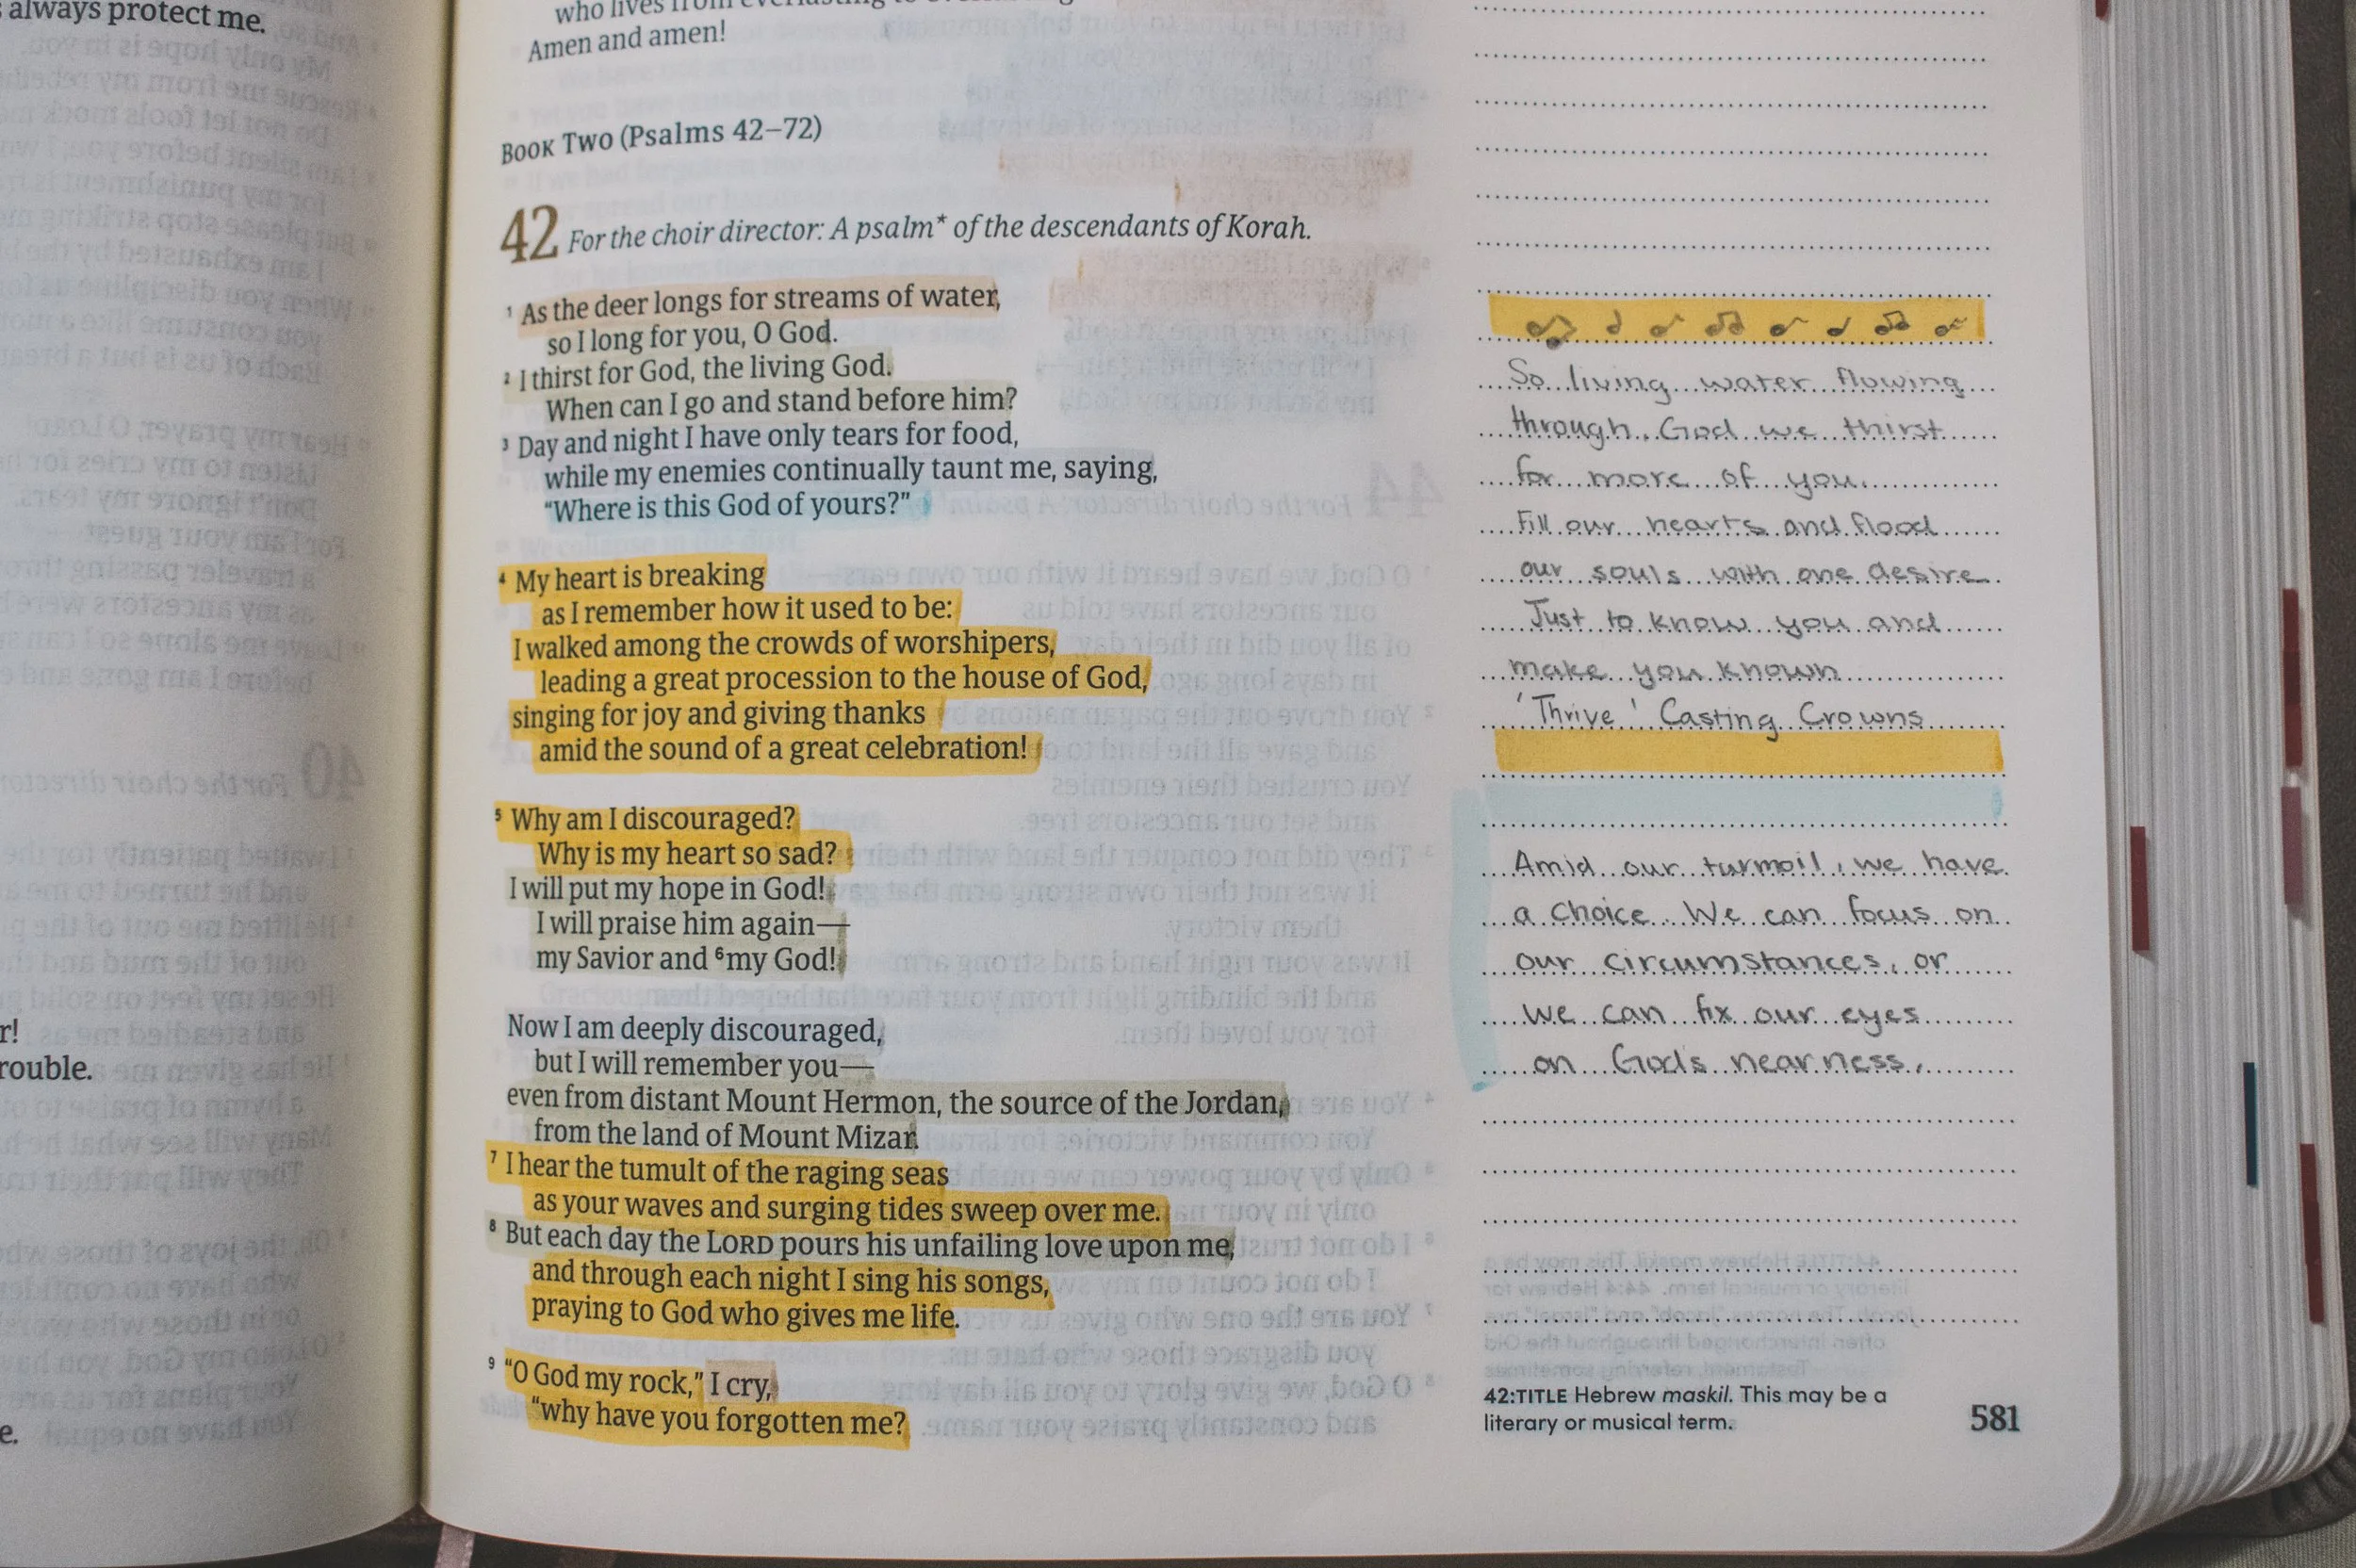 always protect me.
r!
rouble.
e.
who lives from everlasting to
Amen and amen!
BOOK TWO (Psalms 42–72)
42 For the choir director: A psalm* of the descendants of Korah.
1 As the deer longs for streams of water,
so I long for you, O God.
2 I thirst for God, the living God.
When can I go and stand before him?
3 Day and night I have only tears for food,
while my enemies continually taunt me, saying,
“Where is this God of yours?”
4 My heart is breaking
as I remember how it used to be:
I walked among the crowds of worshipers,
leading a great procession to the house of God,
singing for joy and giving thanks
amid the sound of a great celebration!
5 Why am I discouraged?
Why is my heart so sad?
I will put my hope in God!
I will praise him again—
my Savior and 6 my God!
Now I am deeply discouraged,
but I will remember you—
even from distant Mount Hermon, the source of the Jordan,
from the land of Mount Mizar.
7 I hear the tumult of the raging seas
as your waves and surging tides sweep over me.
8 But each day the LORD pours his unfailing love upon me,
and through each night I sing his songs,
praying to God who gives me life.
9 “O God my rock,” I cry,
“why have you forgotten me?
So living water flowing
through, God we thirst
for more of you.
Fill our hearts and flood
our souls with one desire
Just to know you and
make you known
'Thrive' Casting Crowns
Amid our turmoil, we have
a choice. We can focus on
our circumstances, or
we can fix our eyes
on God's nearness.
42:TITLE Hebrew maskil. This may be a
literary or musical term.
581